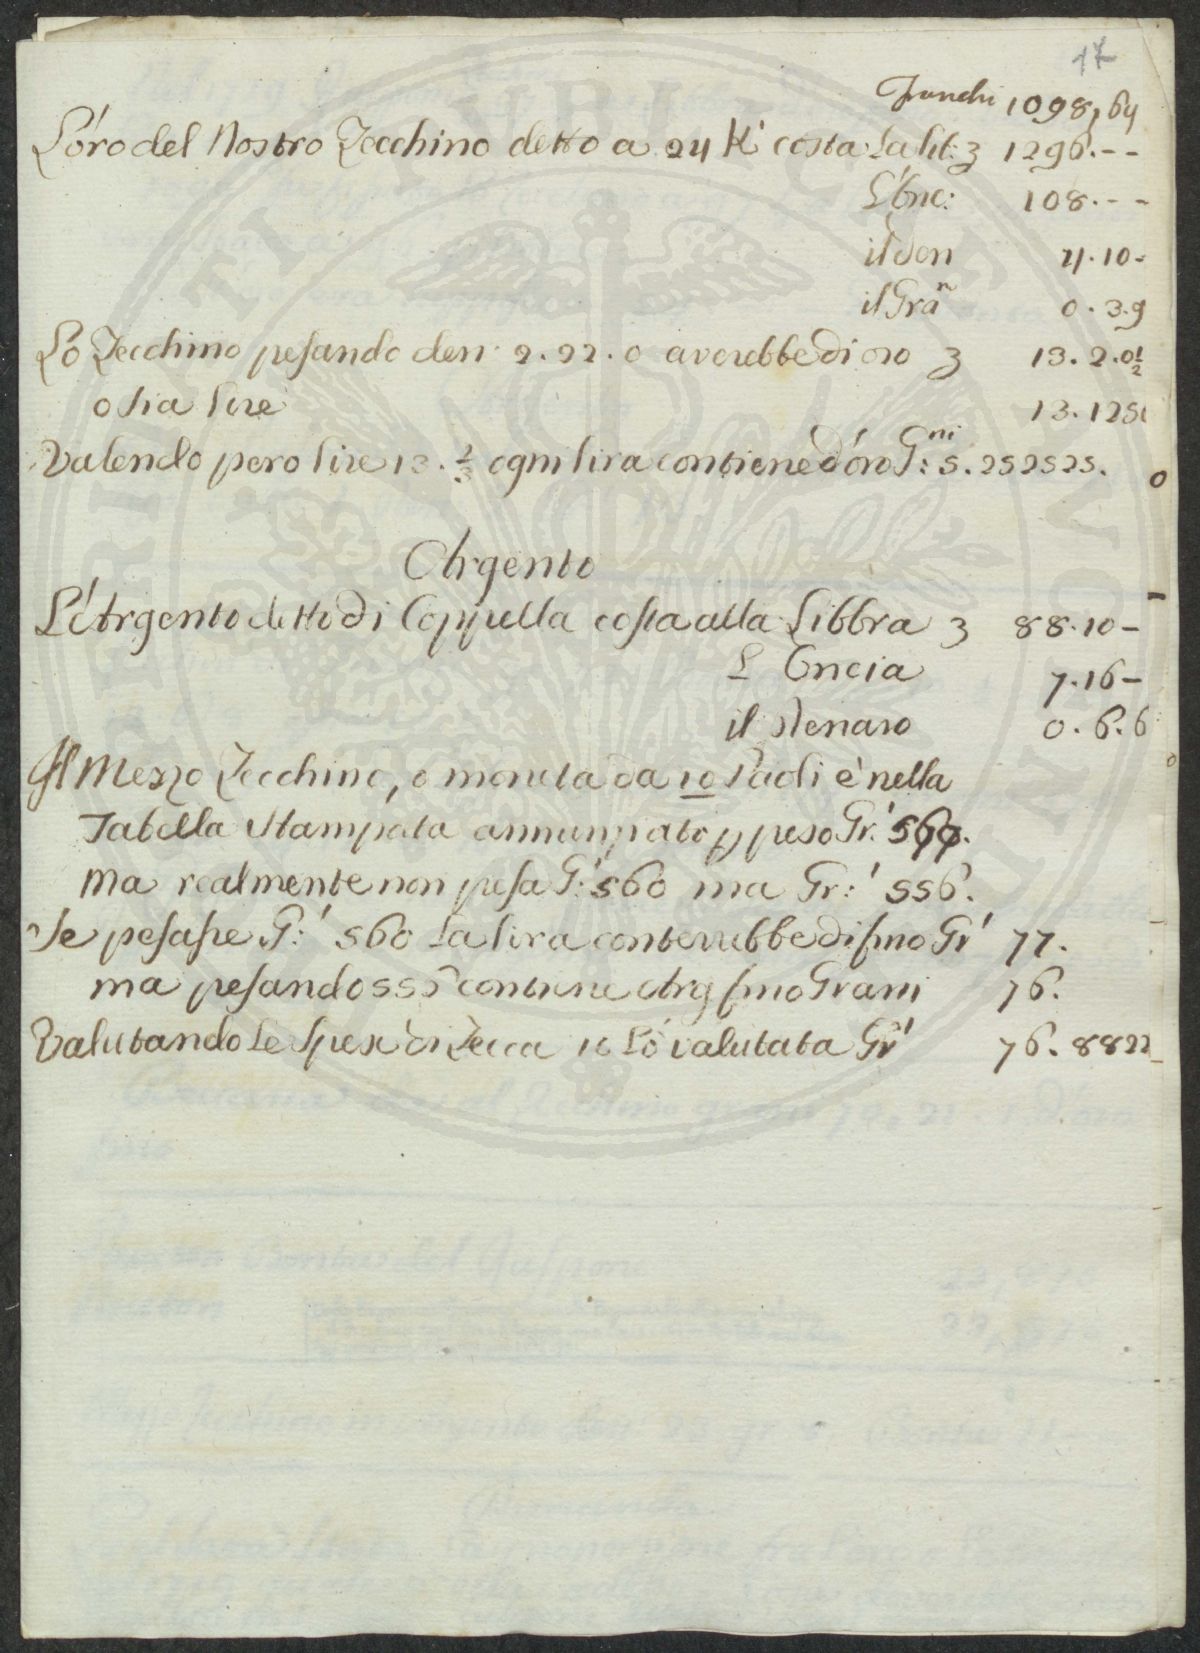 17
Franchi 1098,64
L'óro del Nostro Zecchino detto a 24 K.i costa la lib: ʒ 1296.--
L'Onc: 108.--
il den 4.10-
il Gra.n 0.3.9
Lo Zecchino pesando den. 2.22.0 averebbe di oro ʒ 13.2.0½
o sia lire 13.125
Valendo pero lire 13.⅓ ogni lira contiene d'óro G.ni: 5.252525.
Argento
L'Argento detto di Coppella costa alla Libbra ʒ 88.10-
L Oncia 7.16-
il Denaro 0.6.6
Il Mezzo Zecchino, o moneta da 10 Paoli é nella
Tabella Stampata annunziato p peso Gr.i
ma realmente non pesa G:i 560 ma Gr:i 556.
Se pesasse G:i 560 La lira conterrebbe di fino Gr.i 77.
ma pesando 556 contiene Arg fino Grani 76.
Valutando le spese di Zecca Ló valutata Gr.i 76.8822